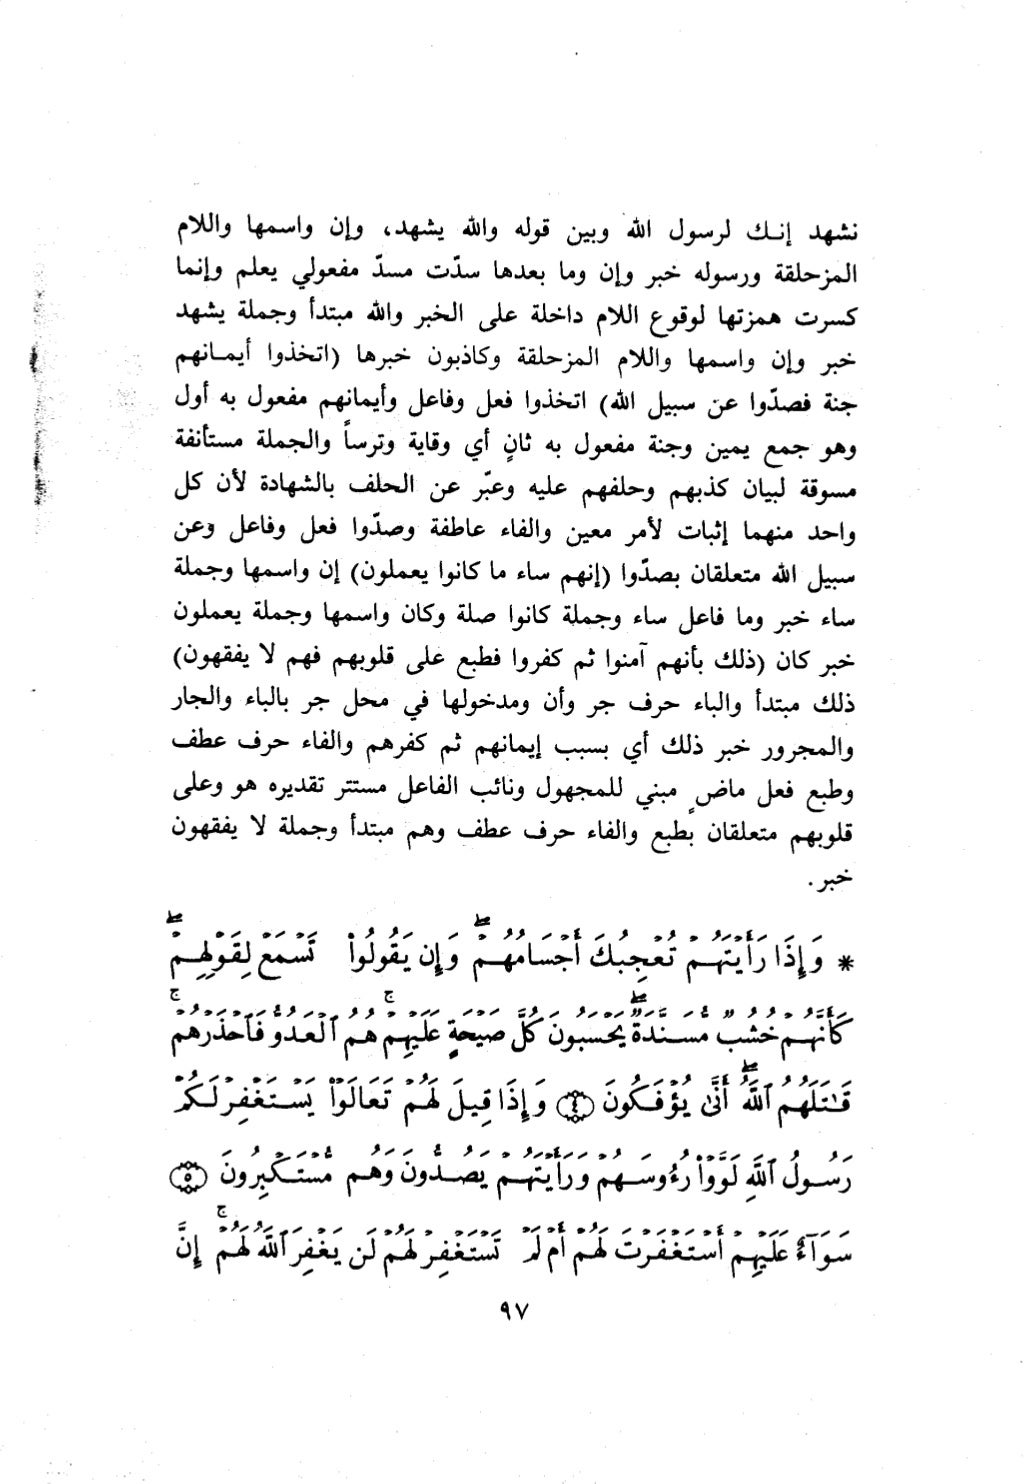 نشهد إنك لرسول الله وبين قوله والله يشهد، وإن واسمها واللام
المزحلقة ورسوله خبر وإن وما بعدها سدّت مسدّ مفعولي يعلم وإنما
كسرت همزتها لوقوع اللام داخلة على الخبر والله مبتدأ وجملة يشهد
خبر وإن واسمها واللام المزحلقة وكاذبون خبرها (اتخذوا أيمانهم
جنة فصدّوا عن سبيل الله) اتخذوا فعل وفاعل وأيمانهم مفعول به أول
وهو جمع يمين وجنة مفعول به ثانٍ أي وقاية وترساً والجملة مستأنفة
مسوقة لبيان كذبهم وحلفهم عليه وعبّر عن الحلف بالشهادة لأن كل
واحد منهما إثبات لأمر معين والفاء عاطفة وصدّوا فعل وفاعل وعن
سبيل الله متعلقان بصدّوا (إنهم ساء ما كانوا يعملون) إن واسمها وجملة
ساء خبر وما فاعل ساء وجملة كانوا صلة وكان واسمها وجملة يعملون
خبر كان (ذلك بأنهم آمنوا ثم كفروا فطبع على قلوبهم فهم لا يفقهون)
ذلك مبتدأ والباء حرف جر وأن ومدخولها في محل جر بالباء والجار
والمجرور خبر ذلك أي بسبب إيمانهم ثم كفرهم والفاء حرف عطف
وطبع فعل ماضٍ مبني للمجهول ونائب الفاعل مستتر تقديره هو وعلى
قلوبهم متعلقان بطبع والفاء حرف عطف وهم مبتدأ وجملة لا يفقهون
خبر.
* وَإِذَا رَأَيْتَهُمْ تُعْجِبُكَ أَجْسَامُهُمْ ۖ وَإِن يَقُولُوا۟ تَسْمَعْ لِقَوْلِهِمْ ۖ
كَأَنَّهُمْ خُشُبٌ مُّسَنَّدَةٌ ۖ يَحْسَبُونَ كُلَّ صَيْحَةٍ عَلَيْهِمْ ۚ هُمُ ٱلْعَدُوُّ فَٱحْذَرْهُمْ ۚ
قَٰتَلَهُمُ ٱللَّهُ ۖ أَنَّىٰ يُؤْفَكُونَ ﴿٤﴾ وَإِذَا قِيلَ لَهُمْ تَعَالَوْا۟ يَسْتَغْفِرْ لَكُمْ
رَسُولُ ٱللَّهِ لَوَّوْا۟ رُءُوسَهُمْ وَرَأَيْتَهُمْ يَصُدُّونَ وَهُم مُّسْتَكْبِرُونَ ﴿٥﴾
سَوَآءٌ عَلَيْهِمْ أَسْتَغْفَرْتَ لَهُمْ أَمْ لَمْ تَسْتَغْفِرْ لَهُمْ لَن يَغْفِرَ ٱللَّهُ لَهُمْ ۚ إِنَّ
٩٧